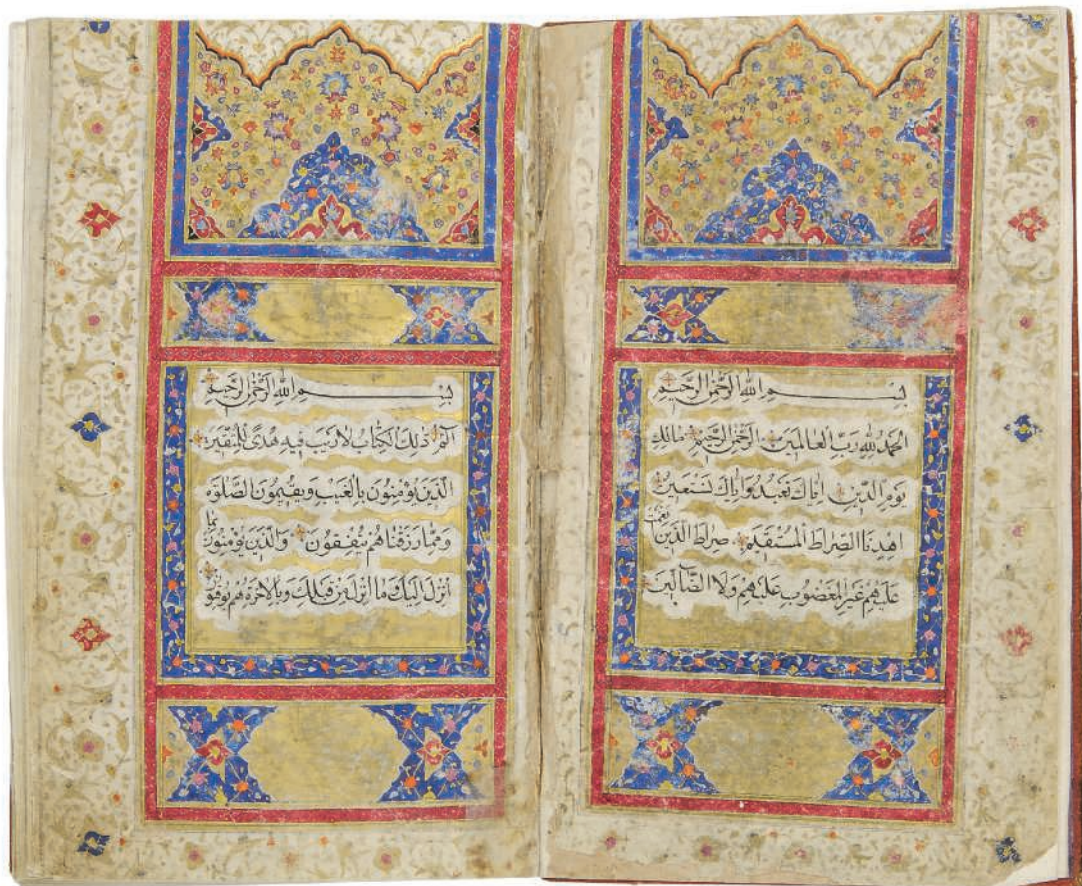 بِسْمِ اللهِ الرَّحْمٰنِ الرَّحِيمِ
الحَمْدُ لِلّٰهِ رَبِّ العَالَمِينَ الرَّحْمٰنِ الرَّحِيمِ مَالِكِ
يَومِ الدِّينِ اِيَّاكَ نَعْبُدُ وَاِيَّاكَ نَسْتَعِينُ
اِهْدِنَا الصِّرَاطَ المُسْتَقِيمَ صِرَاطَ الَّذِينَ اَنْعَمْتَ
عَلَيْهِمْ غَيْرِ المَغْضُوبِ عَلَيْهِمْ وَلَا الضَّآلِّينَ
بِسْمِ اللهِ الرَّحْمٰنِ الرَّحِيمِ
الٓمٓ ذٰلِكَ الكِتَابُ لَا رَيْبَ فِيهِ هُدًى لِلْمُتَّقِينَ
الَّذِينَ يُؤْمِنُونَ بِالْغَيْبِ وَيُقِيمُونَ الصَّلٰوةَ
وَمِمَّا رَزَقْنَاهُمْ يُنْفِقُونَ وَالَّذِينَ يُؤْمِنُونَ بِمَا
اُنْزِلَ اِلَيْكَ وَمَا اُنْزِلَ مِنْ قَبْلِكَ وَبِالْاٰخِرَةِ هُمْ يُوقِنُونَ